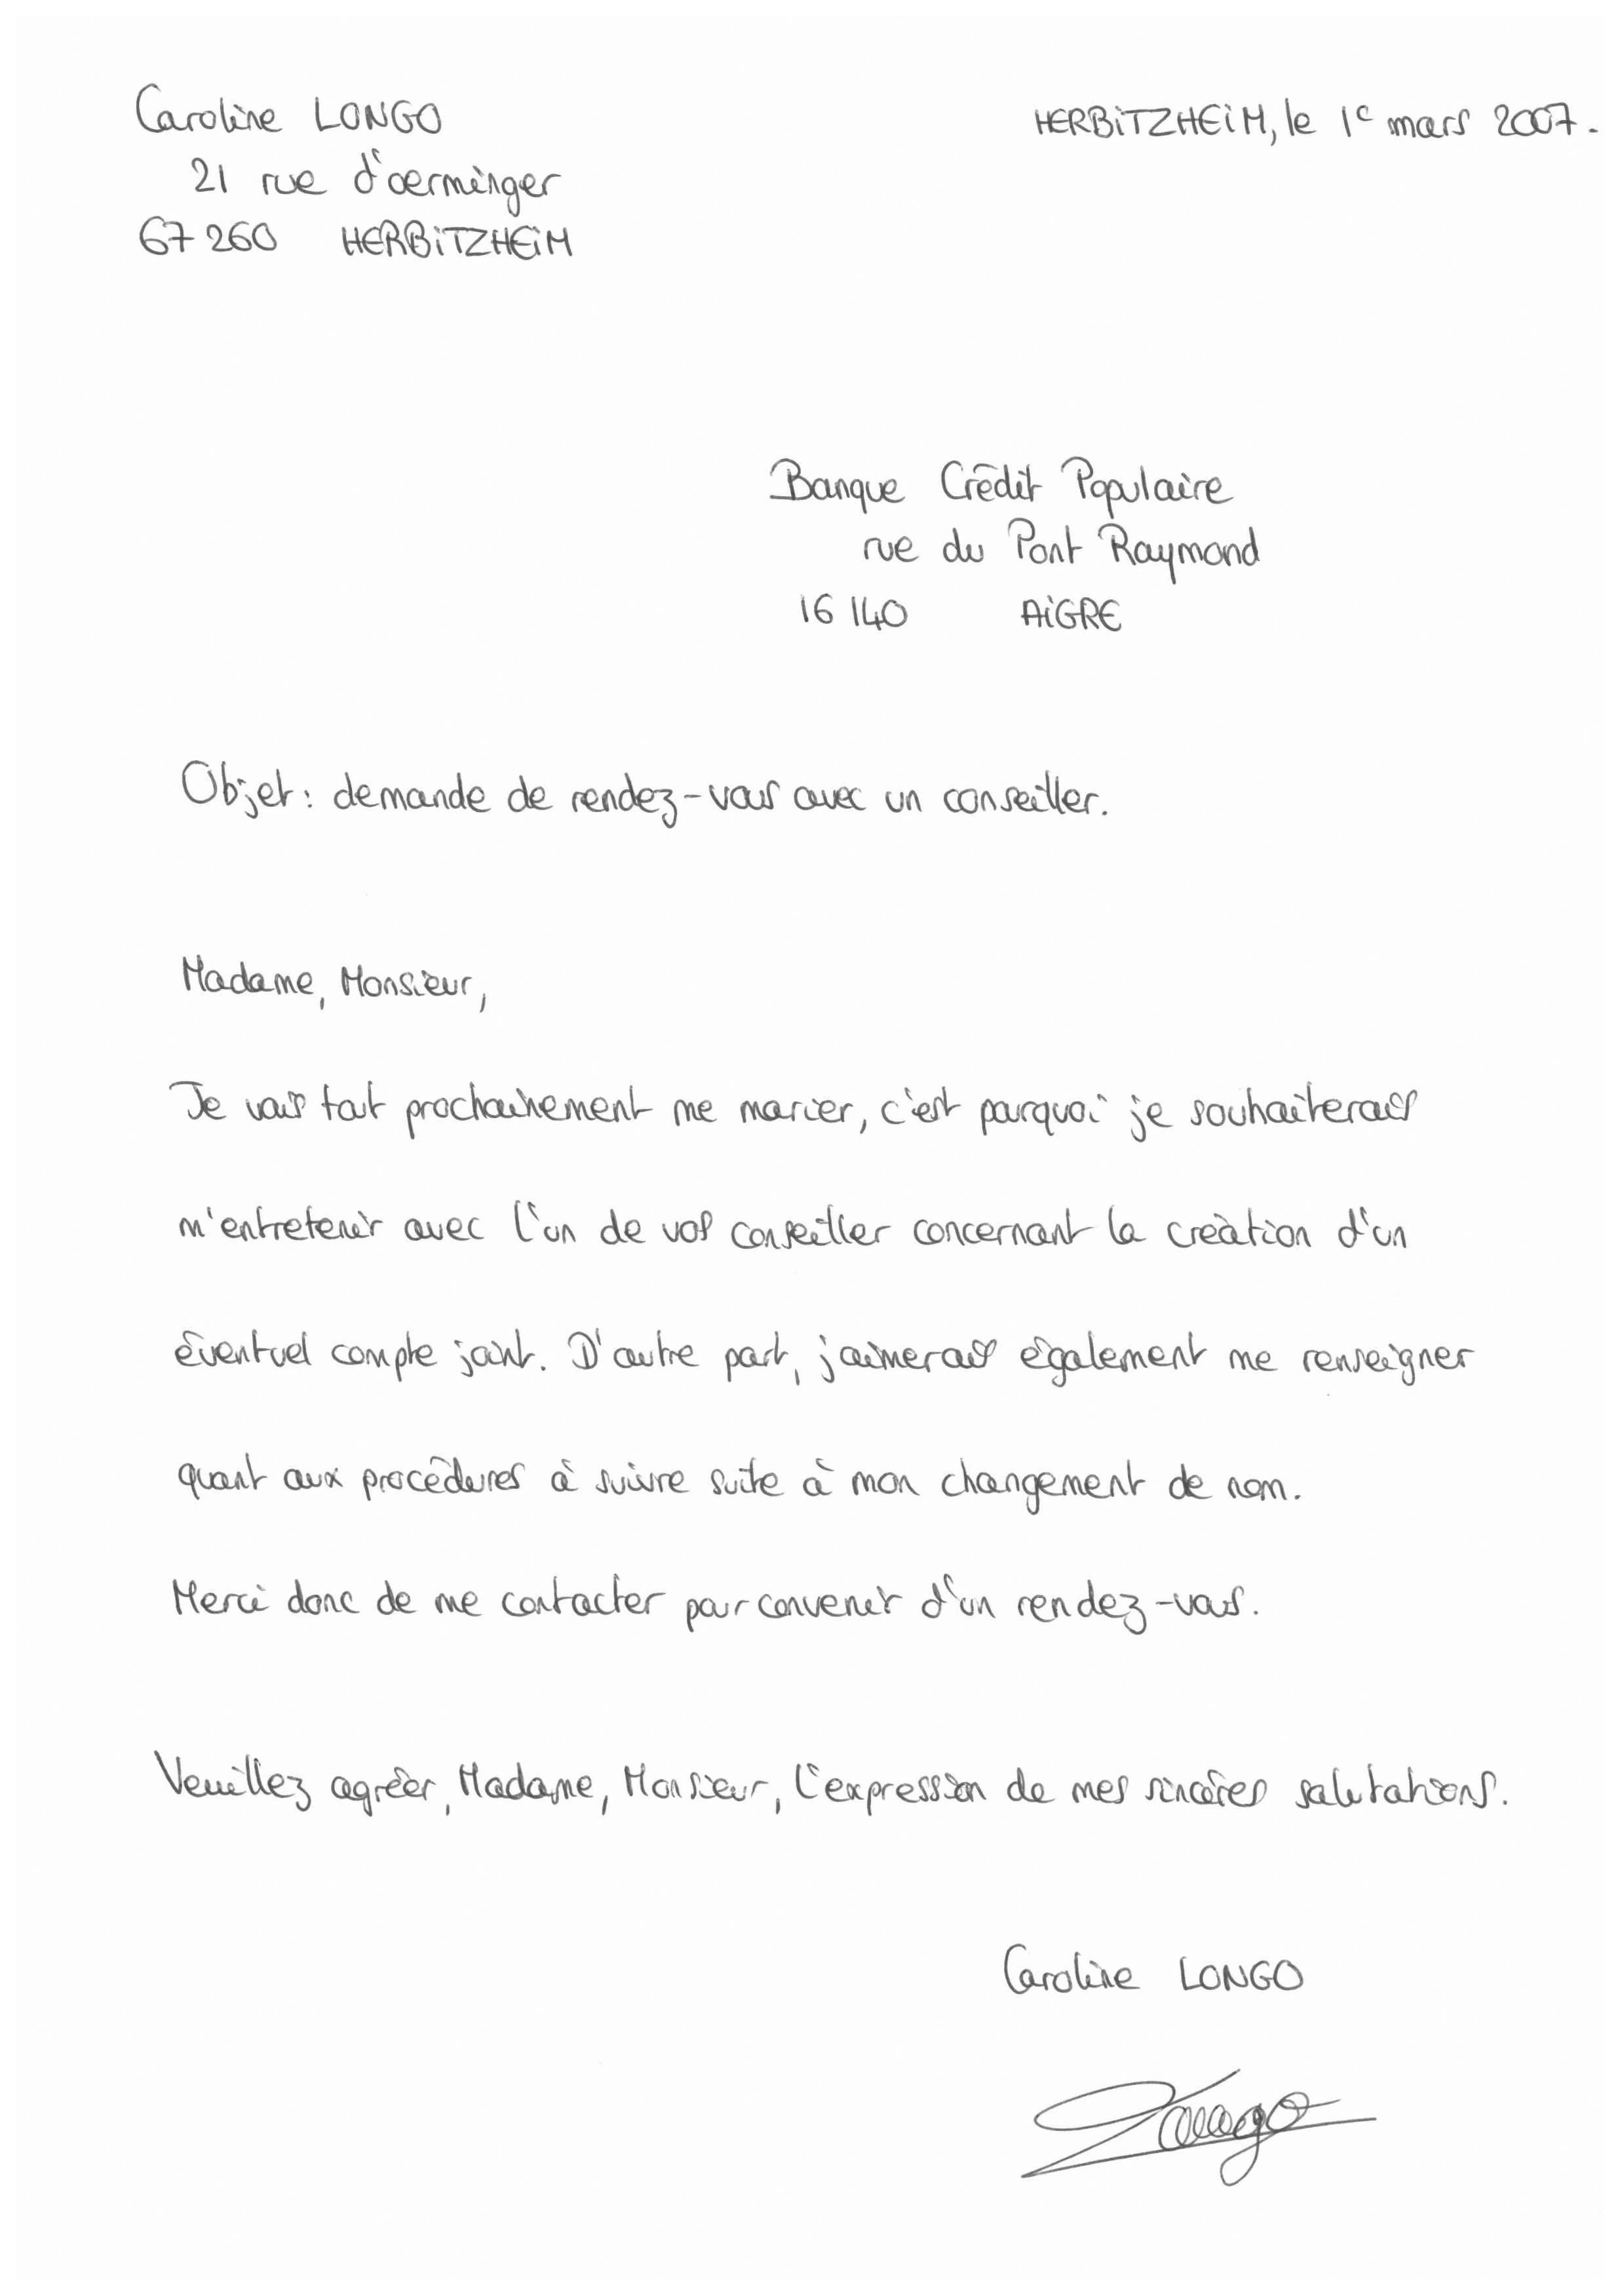 Caroline LONGO
HERBiTZHEiM, le 1e mars 2007.
21 rue d'oerminger
67260 HERBiTZHEiM
Banque Crédit Populaire
rue du Pont Raymond
16140 AiGRE
Objet : demande de rendez-vous avec un conseiller.
Madame, Monsieur,
Je vais tout prochainement me marier, c'est pourquoi je souhaiterais
m'entretenir avec l'un de vos conseiller concernant la création d'un
éventuel compte joint. D'autre part, j'aimerais également me renseigner
quant aux procédures à suivre suite à mon changement de nom.
Merci donc de me contacter pour convenir d'un rendez-vous.
Veuillez agréer, Madame, Monsieur, l'expression de mes sincères salutations.
Caroline LONGO
Longo